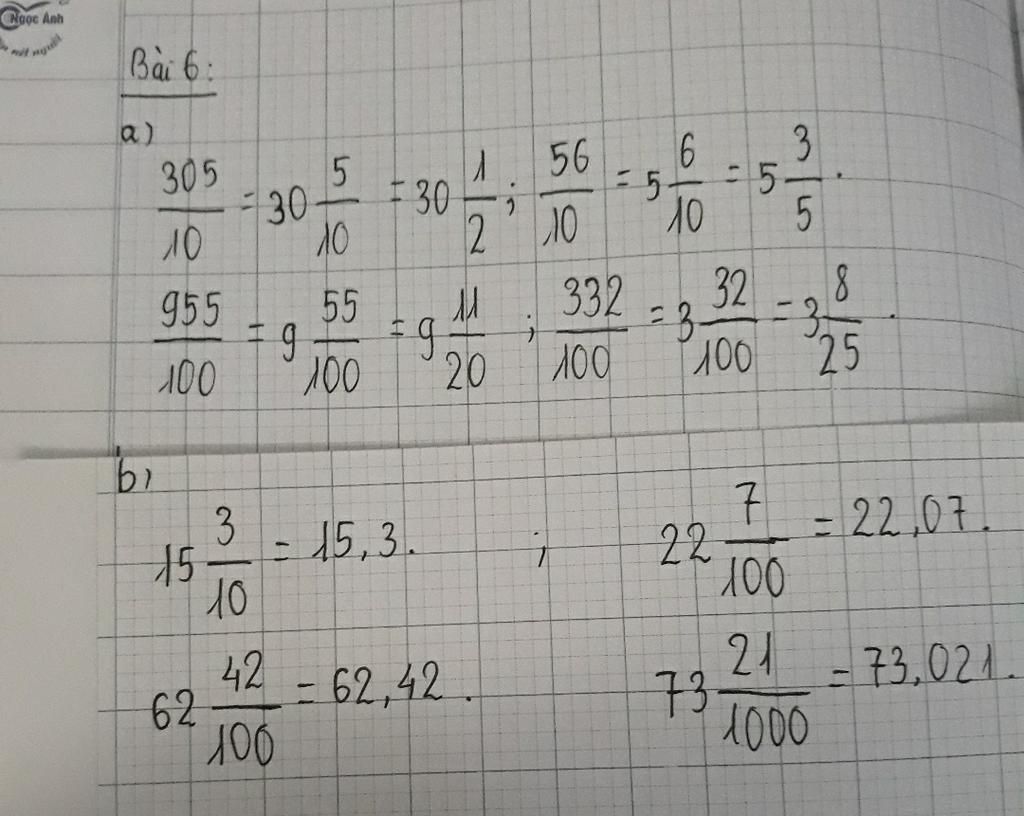 Ngọc Ánh
nét người
Bài 6:
a)
305/10 = 30 5/10 = 30 1/2 ; 56/10 = 5 6/10 = 5 3/5 .
955/100 = 9 55/100 = 9 11/20 ; 332/100 = 3 32/100 = 3 8/25 .
b)
15 3/10 = 15,3. ; 22 7/100 = 22,07.
62 42/100 = 62,42. 73 21/1000 = 73,021.